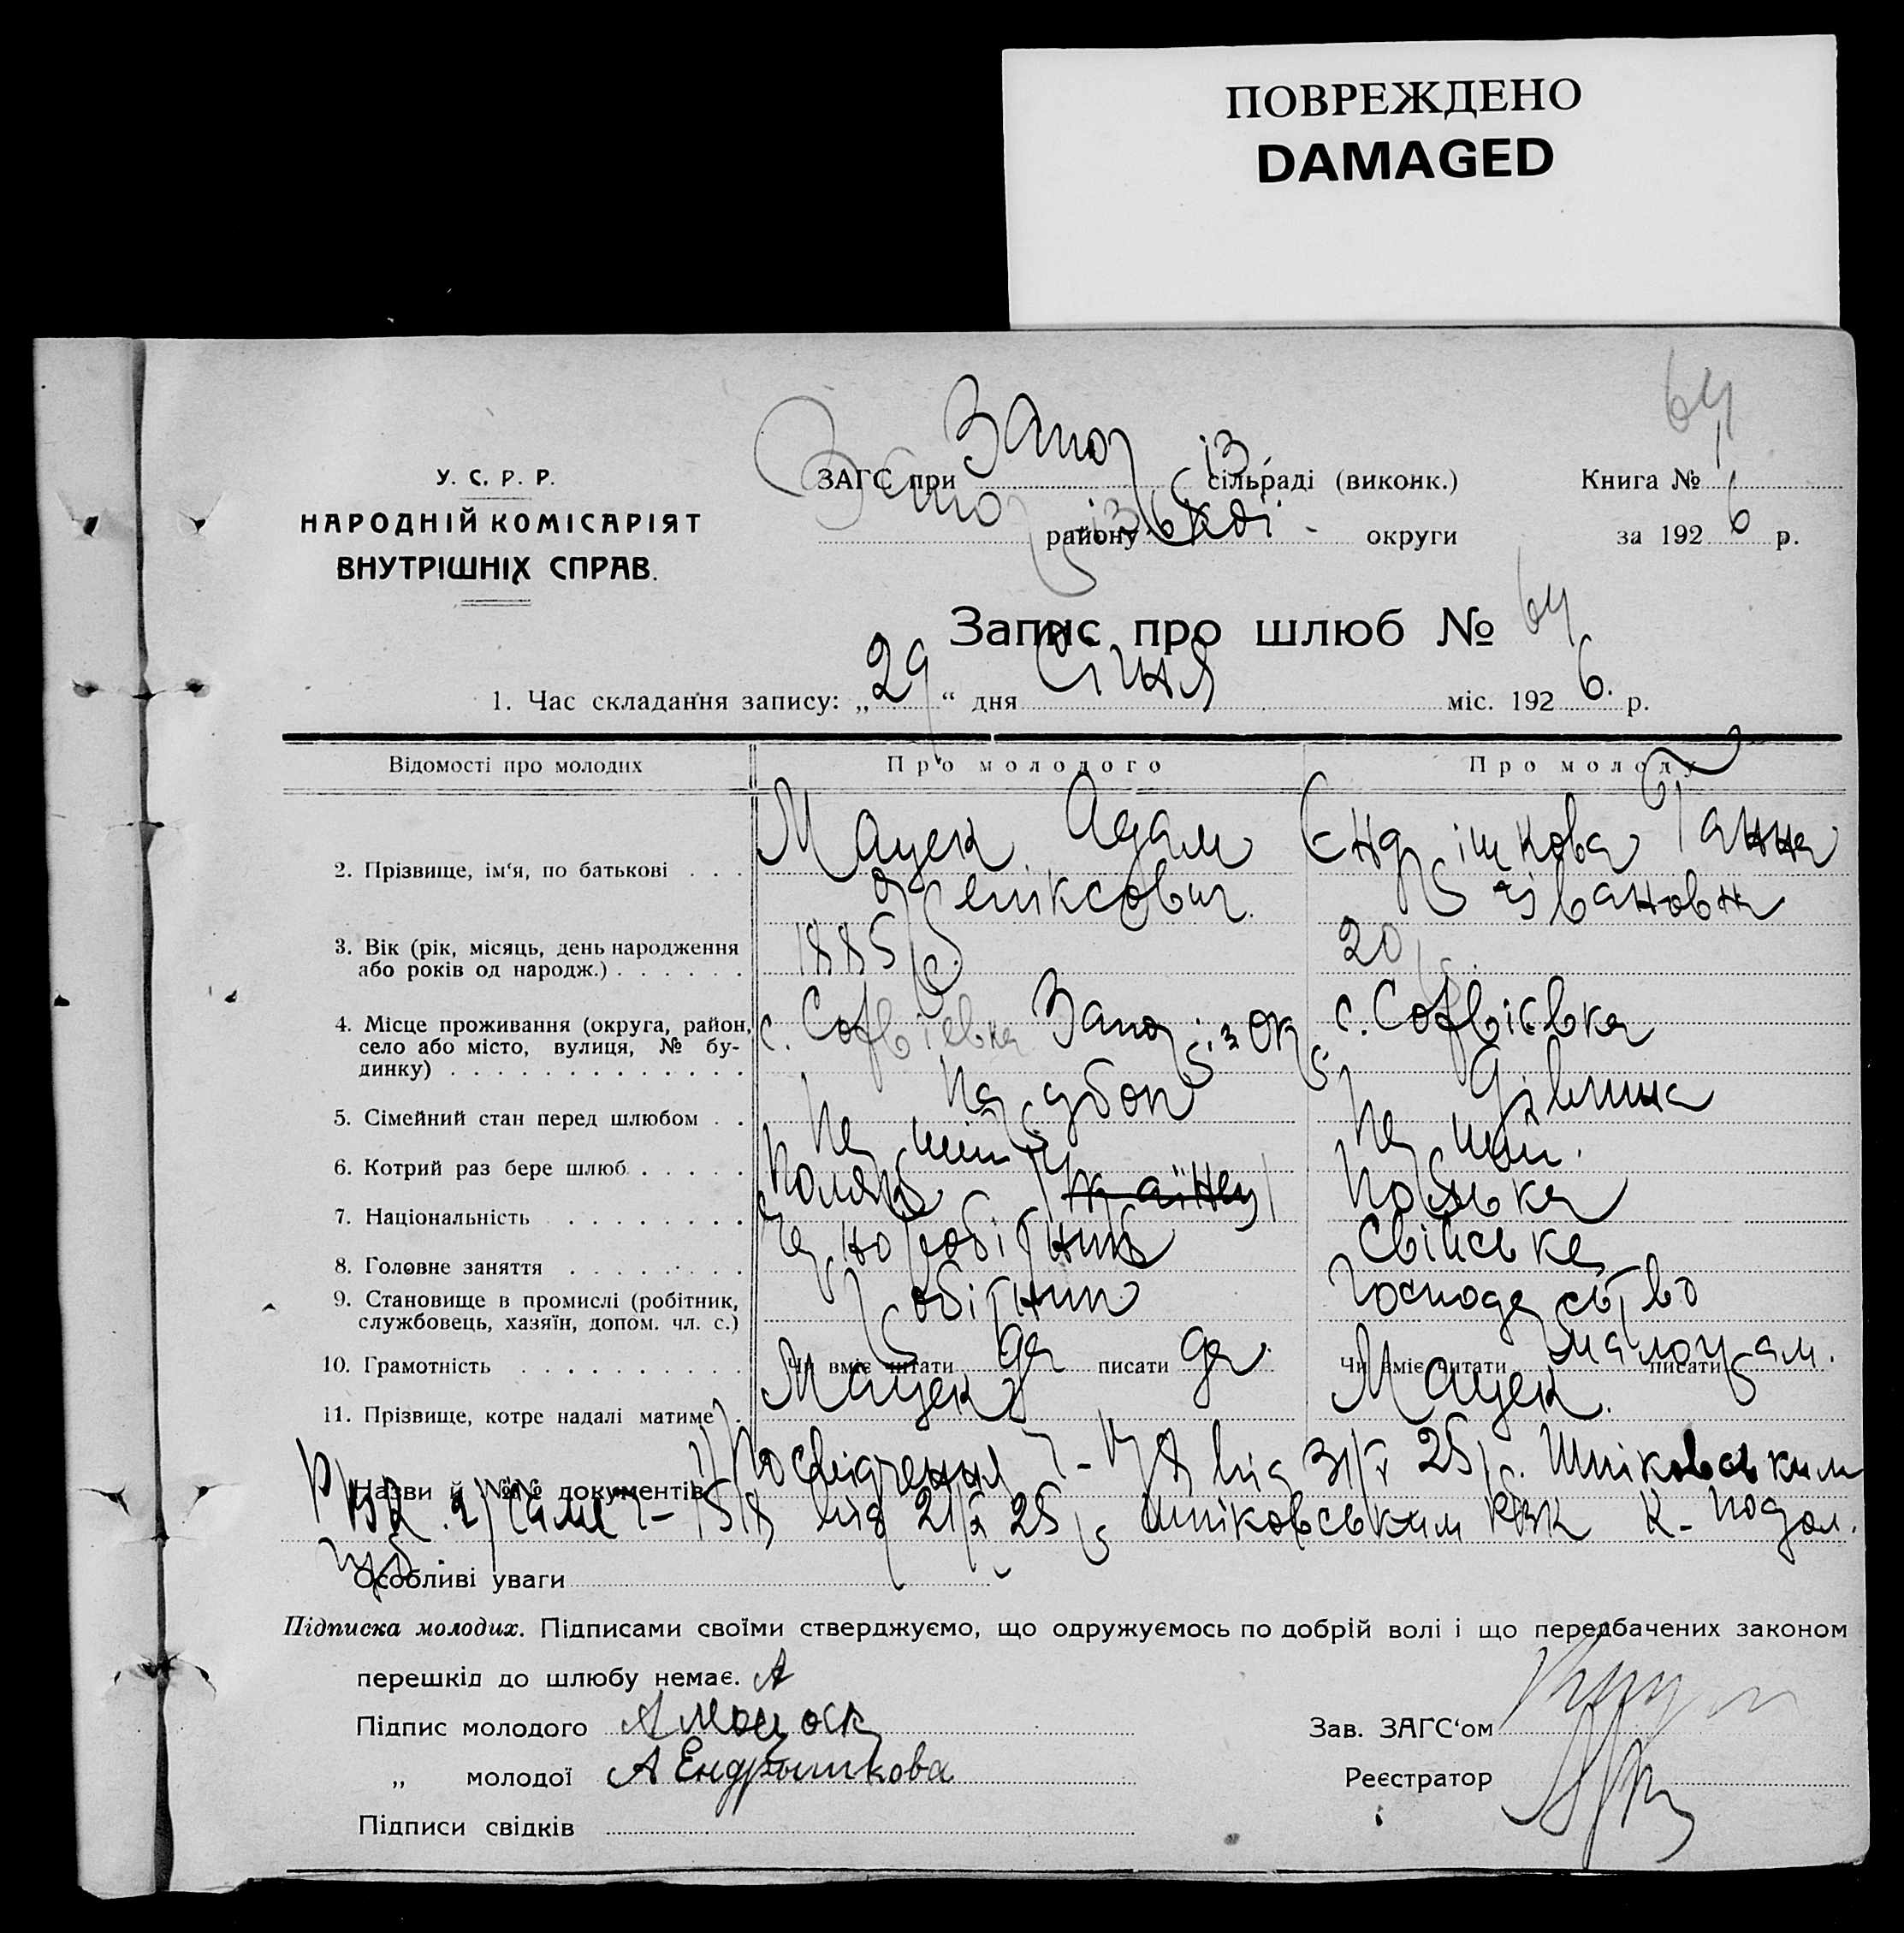 ПОВРЕЖДЕНО
DAMAGED
64
У. С. Р. Р.
НАРОДНІЙ КОМІСАРІЯТ
ВНУТРІШНІХ СПРАВ.
ЗАГС при Запоріз. сільраді (виконк.)
Книга № 1
району округи
за 1926 р.
Запис про шлюб № 64
1. Час складання запису: „29“ дня Січня міс. 1926. р.
Відомості про молодих
Про молодого
Про молоду
2. Прізвище, ім‘я, по батькові . . .
Мацек Адам
Ендрішкова Ганна
Івановна
3. Вік (рік, місяць, день народження
або років од народж.) . . . . . .
1885 р.
20 р.
4. Місце проживання (округа, район,
село або місто, вулиця, № бу-
динку) . . . . . . . . . . . . .
с. Софвієвка Запоріз. Окр.
с. Софвієвка
5. Сімейний стан перед шлюбом . .
Парубок
Дівчина
6. Котрий раз бере шлюб . . . . .
Перший
Перший.
7. Національність . . . . . . . .
Поляк
Полька
8. Головне заняття . . . . . . . .
Чорноробітник
Свійське
9. Становище в промислі (робітник,
службовець, хазяїн, допом. чл. с.)
Робітник
Господарство
10. Грамотність . . . . . . . . . .
Чи вміє читати да писати да.
Чи вміє читати писати
малограм.
11. Прізвище, котре надалі матиме .
Мацек
Мацек.
Назви й №№ документів
1) Посвідчення від 25 р. Шпіковським
РВК. 2) від 25 р. Шпіковським РВК К-Подол.
Особливі уваги
Підписка молодих. Підписами своїми стверджуємо, що одружуємось по добрій волі і що передбачених законом
перешкід до шлюбу немає. А
Підпис молодого
Зав. ЗАГС‘ом
„ молодої А Ендрышкова
Реєстратор
Підписи свідків